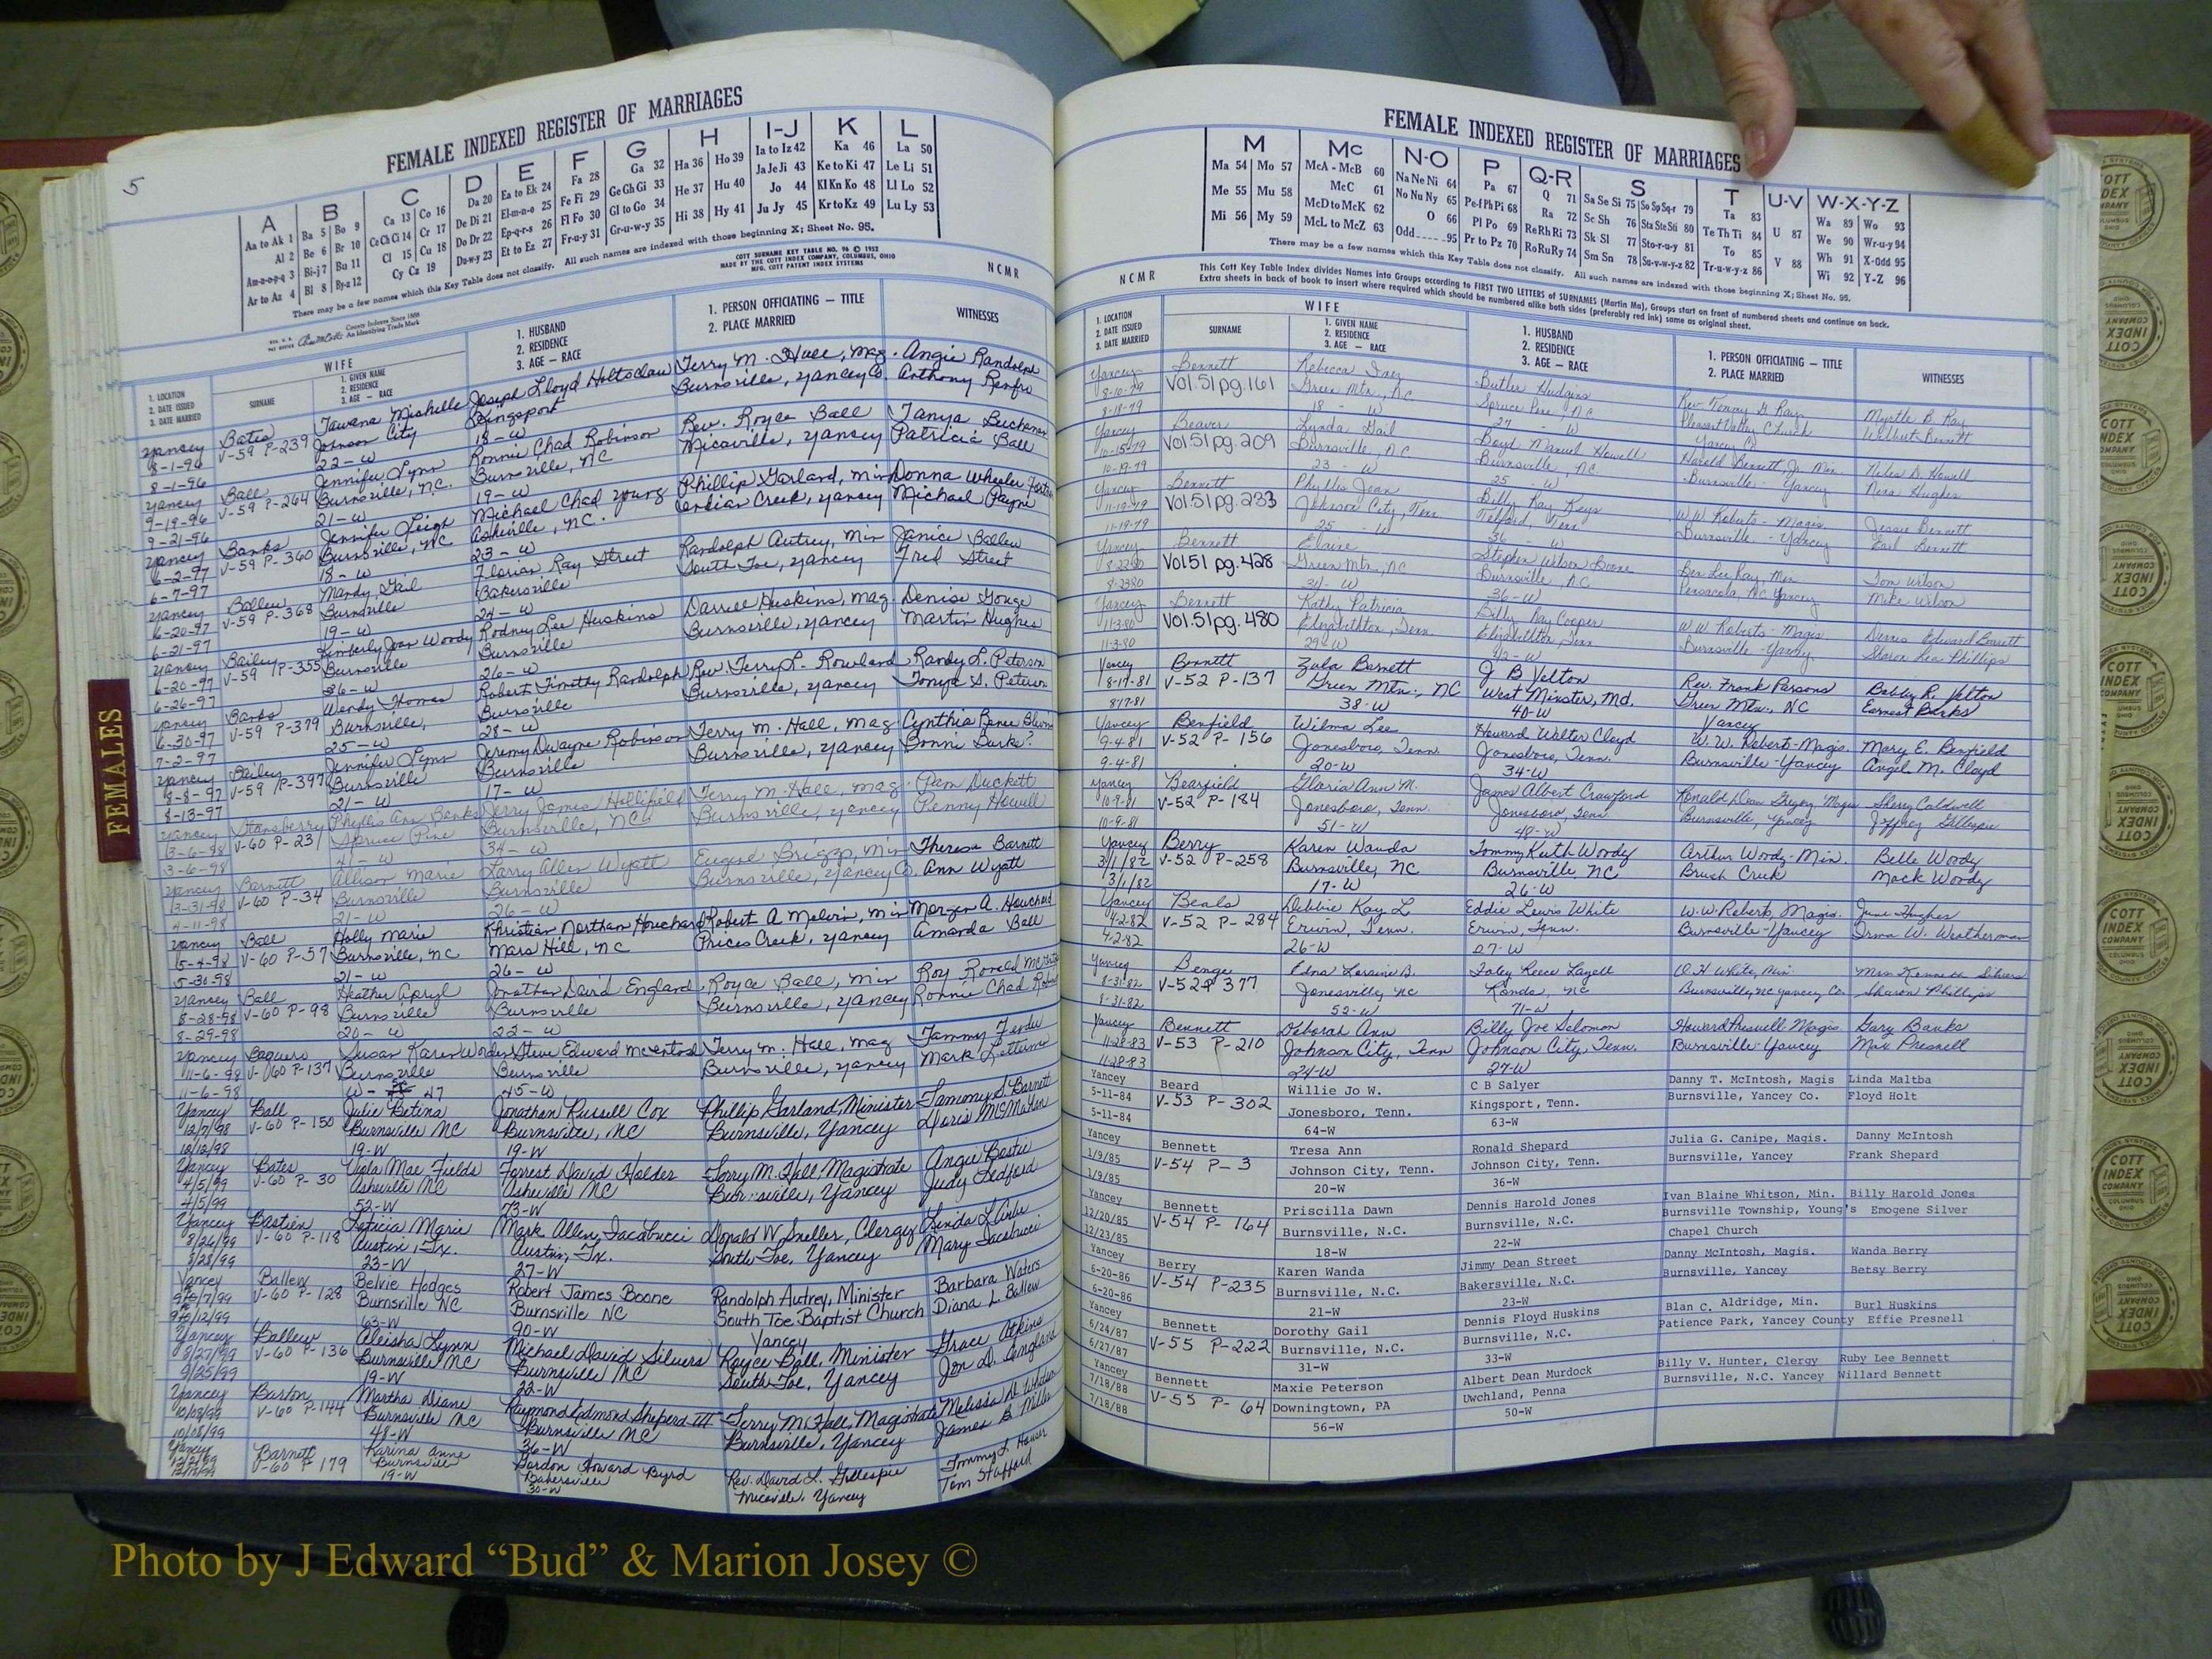 5
FEMALE INDEXED REGISTER OF MARRIAGES
A B C D E F G H I-J K L
Aa to Ak 1 Ba 5 Bo 9 Ca 13 Co 16 Da 20 Ea to Ek 24 Fa 28 Ga 32 Ha 36 Ho 39 Ia to Iz 42 Ka 46 La 50
Al 2 Be 6 Br 10 Ce Ch Ci 14 Cr 17 De Di 21 El-m-n-o 25 Fe Fi 29 Ge Gh Gi 33 He 37 Hu 40 Ja Je Ji 43 Ke to Ki 47 Le Li 51
Am-n-o-p-q 3 Bi-j 7 Bu 11 Cl 15 Cu 18 Do Dr 22 Ep-q-r-s 26 Fl Fo 30 Gl to Go 34 Hi 38 Hy 41 Jo 44 Kl Kn Ko 48 Ll Lo 52
Ar to Az 4 Bl 8 By-z 12 Cy Cz 19 Du-w-y 23 Et to Ez 27 Fr-u-y 31 Gr-u-w-y 35 Ju Jy 45 Kr to Kz 49 Lu Ly 53
There may be a few names which this Key Table does not classify. All such names are indexed with those beginning X; Sheet No. 95.
COTT SURNAME KEY TABLE NO. 96 © 1952
MADE BY THE COTT INDEX COMPANY, COLUMBUS, OHIO
MFG. COTT PATENT INDEX SYSTEMS
NCMR
County Indexes Since 1888
An Identifying Trade Mark
1. LOCATION
2. DATE ISSUED
3. DATE MARRIED
WIFE
SURNAME
1. GIVEN NAME
2. RESIDENCE
3. AGE — RACE
1. HUSBAND
2. RESIDENCE
3. AGE — RACE
1. PERSON OFFICIATING — TITLE
2. PLACE MARRIED
WITNESSES
Yancey Bates Tawana Mishelle Joseph Lloyd Holtsclaw Terry M. Hall, Mag. Angie Randolph
8-1-96 V-59 P-239 Johnson City Kingsport Burnsville, Yancey Co. Anthony Renfro
8-1-96 22-W 18-W
Yancey Ball Jennifer Lynn Ronnie Chad Robinson Rev. Royce Ball Tanya Buchanan
9-19-96 V-59 P-264 Burnsville, N.C. Burnsville, NC Micaville, Yancey Patricia Ball
9-21-96 21-W 19-W
Yancey Banks Jennifer Leigh Michael Chad Young Phillip Garland, Min Donna Wheeler
6-2-97 V-59 P-360 Burnsville, NC Asheville, NC. Indian Creek, Yancey Michael Payne
6-7-97 18-W 23-W
Yancey Ballew Mandy Gail Florian Ray Street Randolph Autrey, Min Janice Ballew
6-20-97 V-59 P-368 Burnsville Bakersville South Toe, Yancey Fred Street
6-21-97 19-W 24-W
Yancey Bailey Kimberly Jan Woody Rodney Lee Huskins Darrell Huskins, Mag. Denise Gouge
6-20-97 V-59 P-355 Burnsville Burnsville Burnsville, Yancey Martin Hughes
6-26-97 36-W 26-W
Yancey Banks Wendy Thomas Robert Timothy Randolph Rev. Terry L. Rowland Randy L. Peterson
6-30-97 V-59 P-379 Burnsville, Burnsville Burnsville, Yancey Tonya S. Peterson
7-2-97 25-W 28-W
Yancey Bailey Jennifer Lynn Jeremy Dwayne Robinson Terry M. Hall, Mag Cynthia Renee
8-8-97 V-59 P-397 Burnsville Burnsville Burnsville, Yancey Bonni Burke?
8-13-97 21-W 17-W
Yancey Stansberry Phyllis Ann Banks Jerry James Hollifield Terry M. Hall, Mag. Pam Duckett
3-6-98 V-60 P-231 Spruce Pine Burnsville, NC Burnsville, Yancey Penny Howell
3-6-98 41-W 34-W
Yancey Barnett Allison Marie Larry Allen Wyatt Eugene Briggs, Min Theresa Barnett
3-31-98 V-60 P-34 Burnsville Burnsville Burnsville, Yancey Co. Ann Wyatt
4-11-98 21-W 26-W
Yancey Ball Holly Marie Khristian Northan Houchard Robert A Melvin, Min Morgan A. Houchard
5-4-98 V-60 P-57 Burnsville, NC Mars Hill, NC Prices Creek, Yancey Amanda Ball
5-30-98 21-W 26-W
Yancey Ball Heather Apryl Jonathan David England Royce Ball, Min Roy Ronald
8-28-98 V-60 P-98 Burnsville Burnsville Burnsville, Yancey Ronnie Chad
8-29-98 20-W 22-W
Yancey Baquero Susan Karen Worden Steve Edward McIntosh Terry M. Hall, Mag Tammy Fender
11-6-98 V-60 P-137 Burnsville Burnsville Burnsville, Yancey Mark
11-6-98 W- 47 45-W
Yancey Ball Julie Betina Jonathan Russell Cox Phillip Garland, Minister Tammy S. Barnett
12/7/98 V-60 P-150 Burnsville NC Burnsville, NC Burnsville, Yancey Doris McMahan
12/12/98 19-W 19-W
Yancey Bates Viola Mae Fields Forrest David Holder Terry M. Hall, Magistrate Angie
4/5/99 V-60 P-30 Asheville NC Asheville NC Burnsville, Yancey Judy Ledford
4/5/99 52-W 73-W
Yancey Bastien Leticia Marie Mark Allen Iacobucci Donald W Sneller, Clergy Linda L
8/26/99 V-60 P-118 Austin, Tx. Austin, Tx. South Toe, Yancey Mary Iacobucci
8/28/99 23-W 27-W
Yancey Ballew Belvie Hodges Robert James Boone Randolph Autrey, Minister Barbara Waters
9/7/99 V-60 P-128 Burnsville NC Burnsville NC South Toe Baptist Church Diana L. Ballew
9/12/99 63-W 90-W Yancey
Yancey Ballew Aleisha Lynn Michael David Silvers Royce Ball, Minister Grace Atkins
8/27/99 V-60 P-136 Burnsville NC Burnsville NC South Toe, Yancey Jon D. England
9/25/99 19-W 22-W
Yancey Barton Martha Diane Raymond Edmond Sheperd III Terry M. Hall, Magistrate Melissa D.
10/08/99 V-60 P-144 Burnsville NC Burnsville NC Burnsville, Yancey James B. Miller
10/08/99 48-W 36-W
Yancey Barnett Karina Anne Gordon Howard Byrd Rev. David L. Gillespie Tommy L. Houser
V-60 P 179 Burnsville Bakersville Micaville, Yancey Tom Stafford
19-W 30-W
FEMALES
FEMALE INDEXED REGISTER OF MARRIAGES
M Mc N-O P Q-R S T U-V W-X-Y-Z
Ma 54 Mo 57 McA - McB 60 Na Ne Ni 64 Pa 67 Q 71 Sa Se Si 75 So Sp Sq-r 79 Ta 83 U 87 Wa 89 Wo 93
Me 55 Mu 58 McC 61 No Nu Ny 65 Pe-f Ph Pi 68 Ra 72 Sc Sh 76 Sta Ste Sti 80 Te Th Ti 84 V 88 We 90 Wr-u-y 94
Mi 56 My 59 McD to McK 62 O 66 Pl Po 69 Re Rh Ri 73 Sk Sl 77 Sto-r-u-y 81 To 85 Wh 91 X-Odd 95
McL to McZ 63 Odd 95 Pr to Pz 70 Ro Ru Ry 74 Sm Sn 78 Su-v-w-y-z 82 Tr-u-w-y-z 86 Wi 92 Y-Z 96
There may be a few names which this Key Table does not classify. All such names are indexed with those beginning X; Sheet No. 95.
NCMR
This Cott Key Table Index divides Names into Groups according to FIRST TWO LETTERS of SURNAMES (Martin Ma), Groups start on front of numbered sheets and continue on back.
Extra sheets in back of book to insert where required which should be numbered alike both sides (preferably red ink) same as original sheet.
1. LOCATION
2. DATE ISSUED
3. DATE MARRIED
WIFE
SURNAME
1. GIVEN NAME
2. RESIDENCE
3. AGE — RACE
1. HUSBAND
2. RESIDENCE
3. AGE — RACE
1. PERSON OFFICIATING — TITLE
2. PLACE MARRIED
WITNESSES
Yancey Bennett Rebecca Inez Butler Hudgins Rev. Tommy G Ray Myrtle B Ray
8-10-79 Vol. 51 pg. 161 Green Mtn., NC Spruce Pine, NC Pleasant Valley Church Wilbert Bennett
8-18-79 18 - W 27 - W Yancey Co
Yancey Beaver Lynda Gail Boyd Manuel Howell Harold Bennett, Jr. Min Helen D. Howell
10-15-79 Vol. 51 pg. 209 Burnsville, N.C. Burnsville, NC Burnsville - Yancey Nina Hughes
10-19-79 23 - W 25 - W
Yancey Bennett Phyllis Jean Billy Ray Keys W.W. Roberts - Magis. Jessie Bennett
11-19-79 Vol. 51 pg. 233 Johnson City, Tenn Telford, Tenn Burnsville - Yancey Earl Bennett
11-19-79 25 - W 36 - W
Yancey Bennett Elaine Stephen Wilson Boone Ben Lee Ray, Min Tom Wilson
8-22-80 Vol 51 pg. 428 Green Mtn., NC Burnsville, NC Pensacola, NC Yancey Mike Wilson
8-23-80 34-W 36-W
Yancey Bennett Kathy Patricia Billy Ray Cooper W.W. Roberts - Magis Dennis Edward Barrett
11-3-80 Vol. 51 pg. 480 Elizabethton, Tenn. Elizabethton, Tenn Burnsville - Yancey Sharon Lea Phillips
11-3-80 29-W 42-W
Yancey Bennett Zula Barnett J B Yelton Rev. Frank Parsons Bobby R. Yelton
8-17-81 V-52 P-137 Green Mtn., NC West Minster, Md. Green Mtn., NC Earnest Banks
8-17-81 38-W 40-W Yancey
Yancey Benfield Wilma Lee Howard Walter Cloyd W. W. Roberts-Magis. Mary E. Benfield
9-4-81 V-52 P-156 Jonesboro, Tenn. Jonesboro, Tenn. Burnsville-Yancey Angel M. Cloyd
9-4-81 20-W 34-W
Yancey Bearfield Gloria Ann M. James Albert Crawford Ronald Dean Magis Sherry Caldwell
10-9-81 V-52 P-184 Jonesboro, Tenn. Jonesboro, Tenn Burnsville, Yancey Jeffrey Gillespie
10-9-81 51-W 48-W
Yancey Berry Karen Wanda Tommy Keith Woody Arthur Woody-Min. Belle Woody
3/1/82 V-52 P-258 Burnsville, NC Burnsville NC Brush Creek Mack Woody
3/1/82 17-W 26-W
Yancey Beals Debbie Kay L Eddie Lewis White W.W. Roberts, Magis. June Hughes
4-2-82 V-52 P-284 Erwin, Tenn. Erwin, Tenn. Burnsville-Yancey Irma W. Weatherman
4-2-82 26-W 27-W
Yancey Benge Edna Loraine B. Foley Reece Lazell O.H. White, Min. Mrs Kenneth Silvers
8-31-82 V-52 P 377 Jonesville, NC Ronda, NC Burnsville, NC Yancey Co. Sharon Phillips
8-31-82 52-W 71-W
Yancey Bennett Deborah Ann Billy Joe Solomon Howard Presnell-Magis. Gary Banks
11-28-83 V-53 P-210 Johnson City, Tenn Johnson City, Tenn. Burnsville-Yancey Max Presnell
11-28-83 24-W 27-W
Yancey Beard Willie Jo W. C B Salyer Danny T. McIntosh, Magis Linda Maltba
5-11-84 V-53 P-302 Jonesboro, Tenn. Kingsport, Tenn. Burnsville, Yancey Co. Floyd Holt
5-11-84 64-W 63-W
Yancey Bennett Tresa Ann Ronald Shepard Julia G. Canipe, Magis. Danny McIntosh
1/9/85 V-54 P-3 Johnson City, Tenn. Johnson City, Tenn. Burnsville, Yancey Frank Shepard
1/9/85 20-W 36-W
Yancey Bennett Priscilla Dawn Dennis Harold Jones Ivan Blaine Whitson, Min. Billy Harold Jones
12/20/85 V-54 P-164 Burnsville, N.C. Burnsville, N.C. Burnsville Township, Young's Emogene Silver
12/23/85 18-W 22-W Chapel Church
Yancey Berry Karen Wanda Jimmy Dean Street Danny McIntosh, Magis. Wanda Berry
6-20-86 V-54 P-235 Burnsville, N.C. Bakersville, N.C. Burnsville, Yancey Betsy Berry
6-20-86 21-W 23-W
Yancey Bennett Dorothy Gail Dennis Floyd Huskins Blan C. Aldridge, Min. Burl Huskins
6/24/87 V-55 P-222 Burnsville, N.C. Burnsville, N.C. Patience Park, Yancey County Effie Presnell
6/27/87 31-W 33-W
Yancey Bennett Maxie Peterson Albert Dean Murdock Billy V. Hunter, Clergy Ruby Lee Bennett
7/18/88 V-55 P-64 Downingtown, PA Uwchland, Penna Burnsville, N.C. Yancey Willard Bennett
7/18/88 56-W 50-W
COTT
INDEX
COMPANY
COLUMBUS
OHIO
Photo by J Edward “Bud” & Marion Josey ©